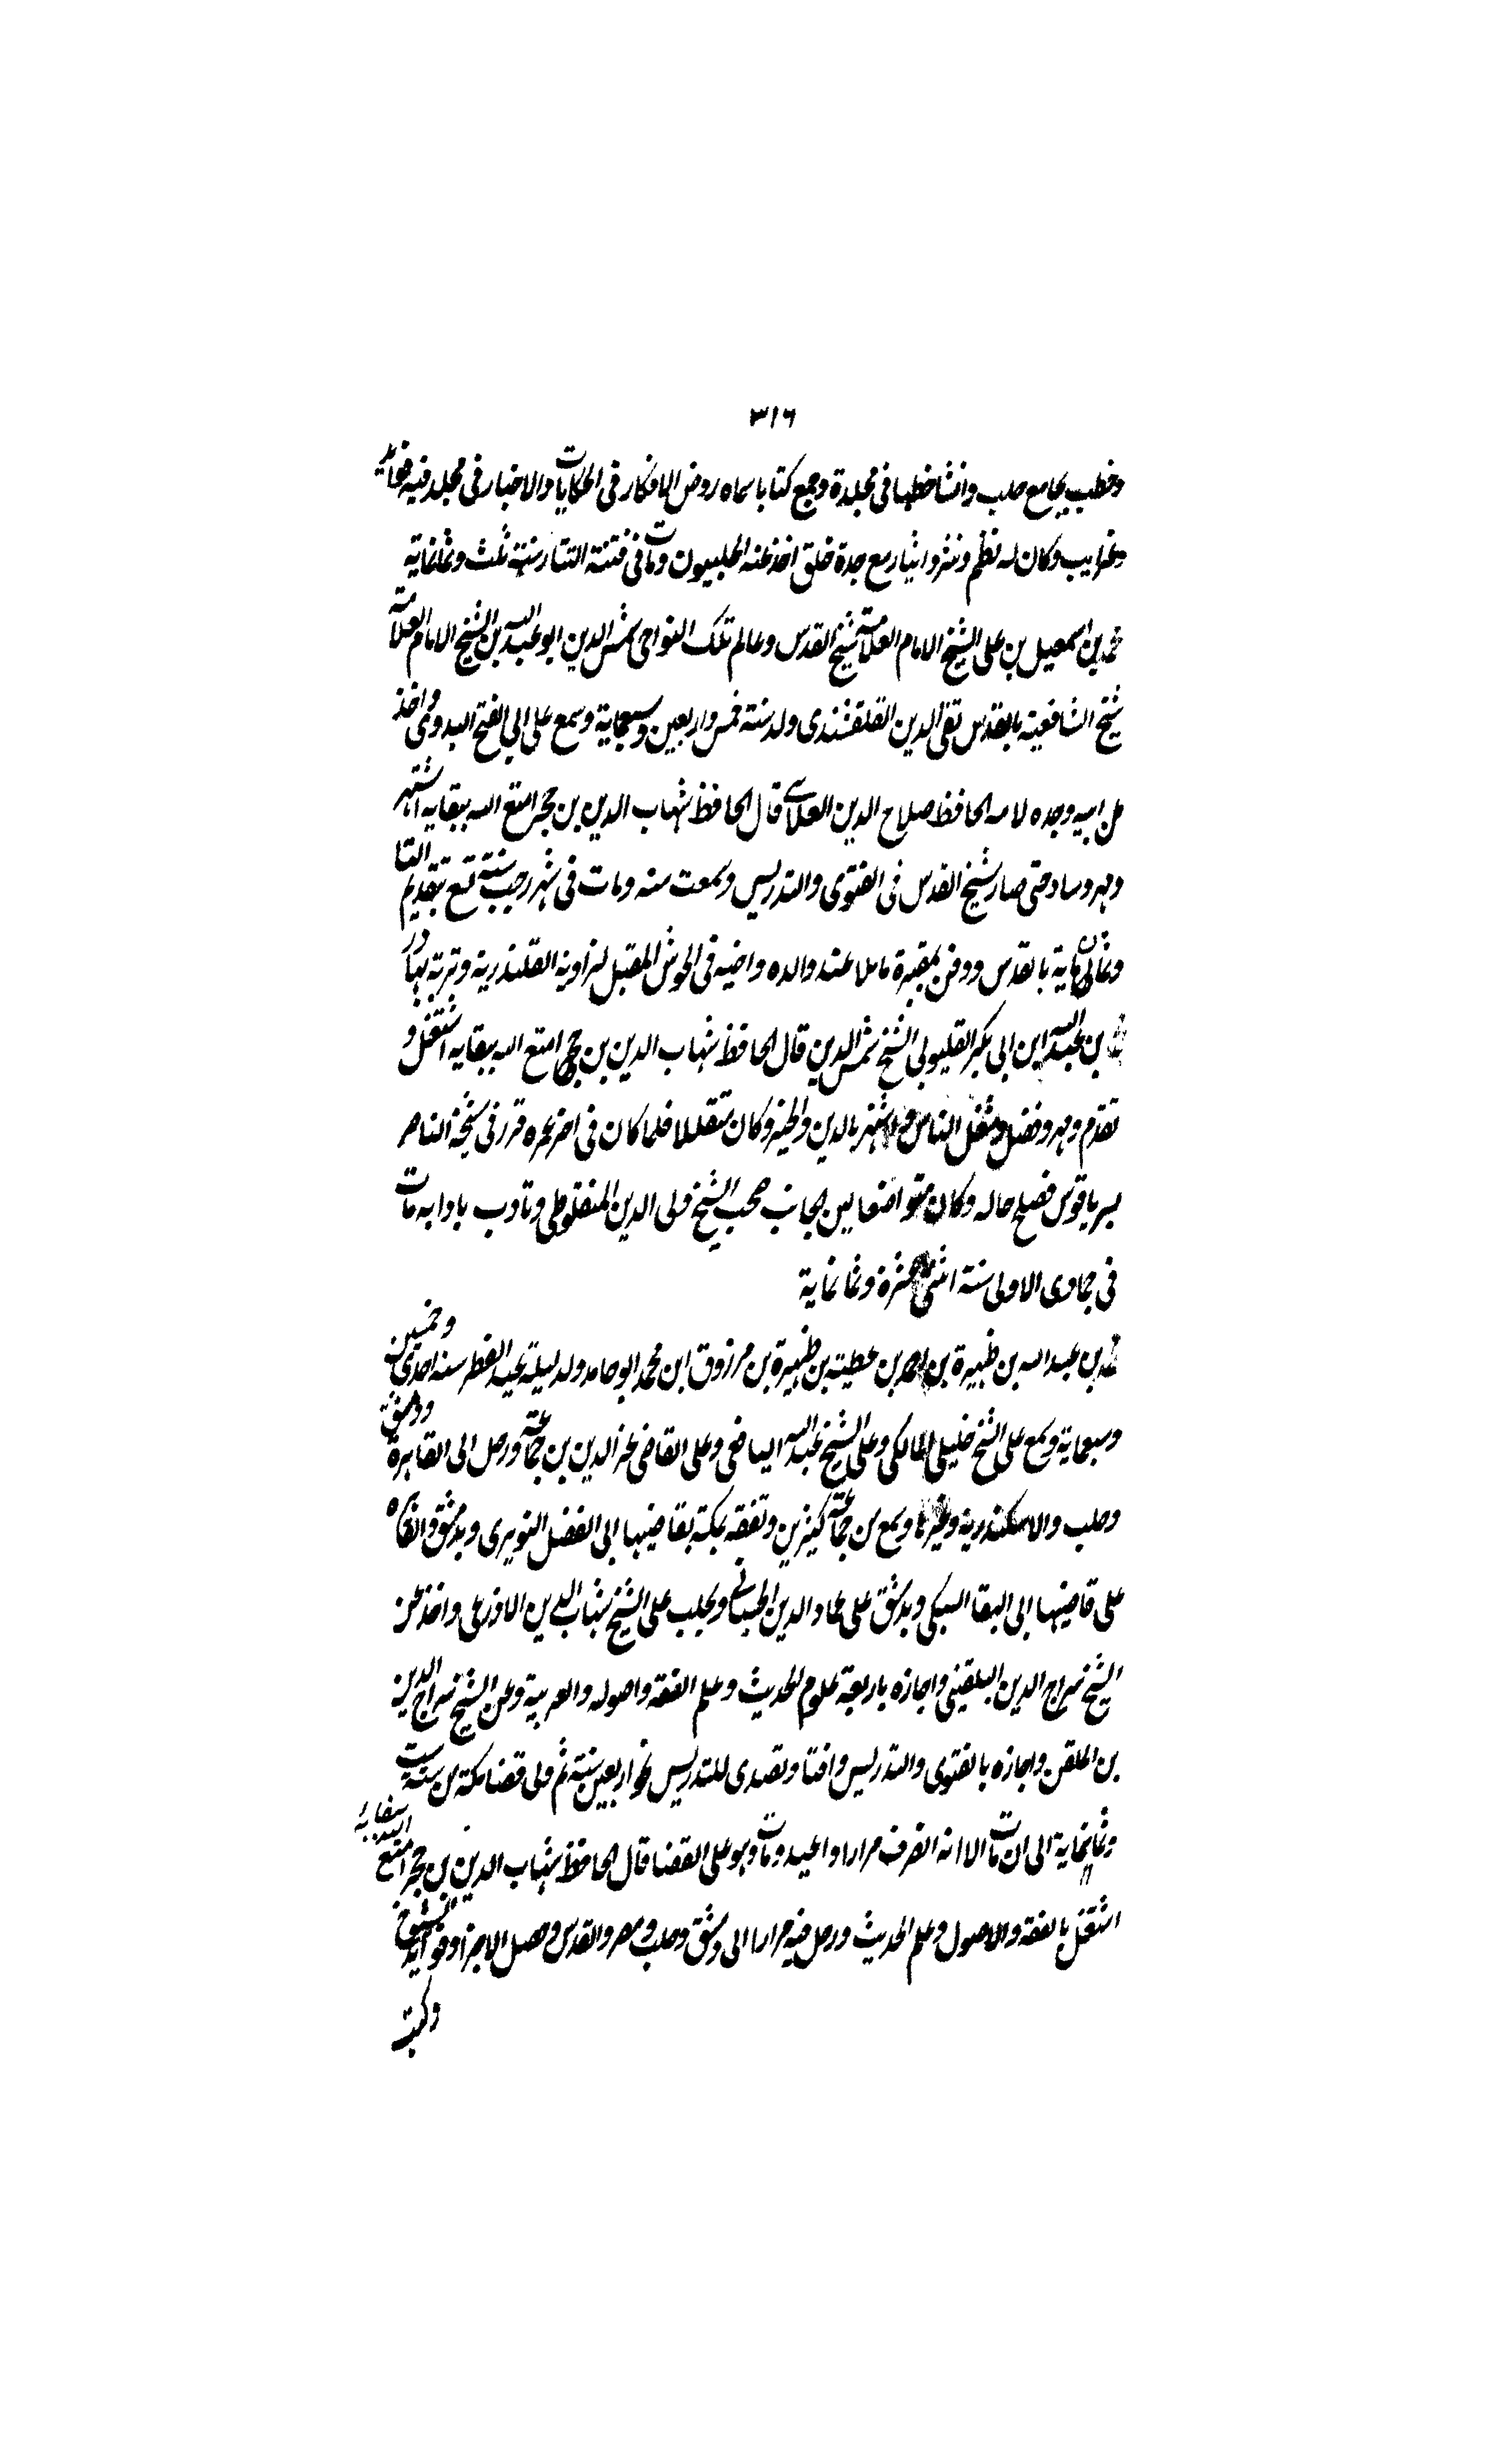 ٣١٦
وخطب بجامع حلب وانشا خطبا فى مجلدة وجمع كتابا سماه روض الافكار فى الحكايات والاخبار فى مجلد فيه فوايد
وغرايب وكان له نظم ونثر وايثار مع جدة خلق اخذ عنه الحلبيون ومات فى فتنة التتار سنة ثلث وثمانماية
محمد بن اسمعيل بن على الشيخ الامام العلامة شيخ القدس وعالم تلك النواحى شمس الدين ابو عبد الله بن الشيخ الامام العلامة
شيخ الشافعية بالقدس تقى الدين القلقشندى ولد سنة خمس واربعين وسبعماية وسمع على ابى الفتح الميدومى واخذ
عن ابيه وجده لامه الحافظ صلاح الدين العلائى قال الحافظ شهاب الدين بن حجر امتع الله ببقايه اشتهر
ومهر وساد حتى صار شيخ القدس فى الفتوى والتدريس وسمعت منه ومات فى شهر رجب سنة تسع بتقديم التا
وثمانماية بالقدس ودفن بمقبرة ماملا عند والده واخيه فى الحوش المقبل لزاوية القلندرية وتربة بهادر
محمد بن عبد الله ابن ابى بكر القليوبى الشيخ شمس الدين قال الحافظ شهاب الدين بن حجر امتع الله ببقايه اشتغل و
تقدم ومهر وفضل وشغل الناس واشتهر بالدين والخير وكان متقللا فلما كان فى اخر عمره قرر فى مشيخة الناصر
بسرياقوس فصلح حاله وكان متواضعا لين الجانب صحب الشيخ ولى الدين المنفلوطى وتادب بادابه مات
فى جمادى الاولى سنة اثنى عشرة وثمانماية
محمد بن عبد الله بن ظهيرة بن احمد بن عطية بن ظهيرة بن مرزوق ابن محمد ابو حامد ولد ليلة عيد الفطر سنه احدى وخمسين
وسبعماية وسمع على الشيخ خليل المالكى وعلى الشيخ عبد الله اليافعى وعلى القاضى عز الدين بن جماعة ورحل الى القاهرة ودمشق
وحلب والاسكندرية وغيرها وسمع من جماعة كثيرين وتفقه بمكة بقاضيها ابى الفضل النويرى وبدمشق والقاهرة
على قاضيها ابى البقا السبكى وبدمشق على عماد الدين الحسبانى وبحلب على الشيخ شهاب الدين الاذرعى واخذ عن
الشيخ سراج الدين البلقينى واجازه باربعة علوم الحديث وعلم الفقه واصوله والعربية وعن الشيخ سراج الدين
بن الملقن واجازه بالفتوى والتدريس وافتا وتصدى للتدريس نحو اربعين سنة ثم ولى قضا مكة من سنة ست
وثمانماية الى ان مات الا انه انصرف مرارا واعيد ومات وهو على القضا قال الحافظ شهاب الدين بن حجر امتع الله ببقايه
اشتغل بالفقه والاصول وعلم الحديث ورحل فيه مرارا الى دمشق وحلب ومصر والقدس وحصل الاجزا وفوايد الشيوخ
وكتب